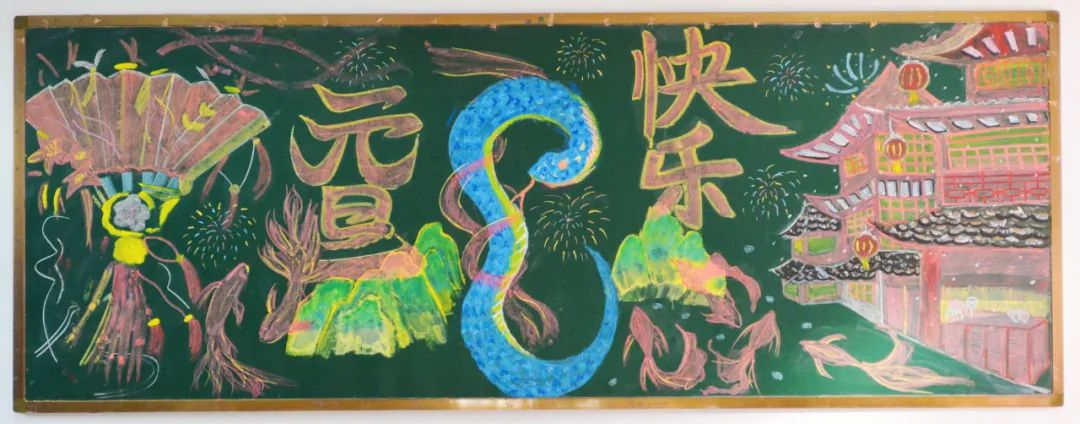 元旦
快乐